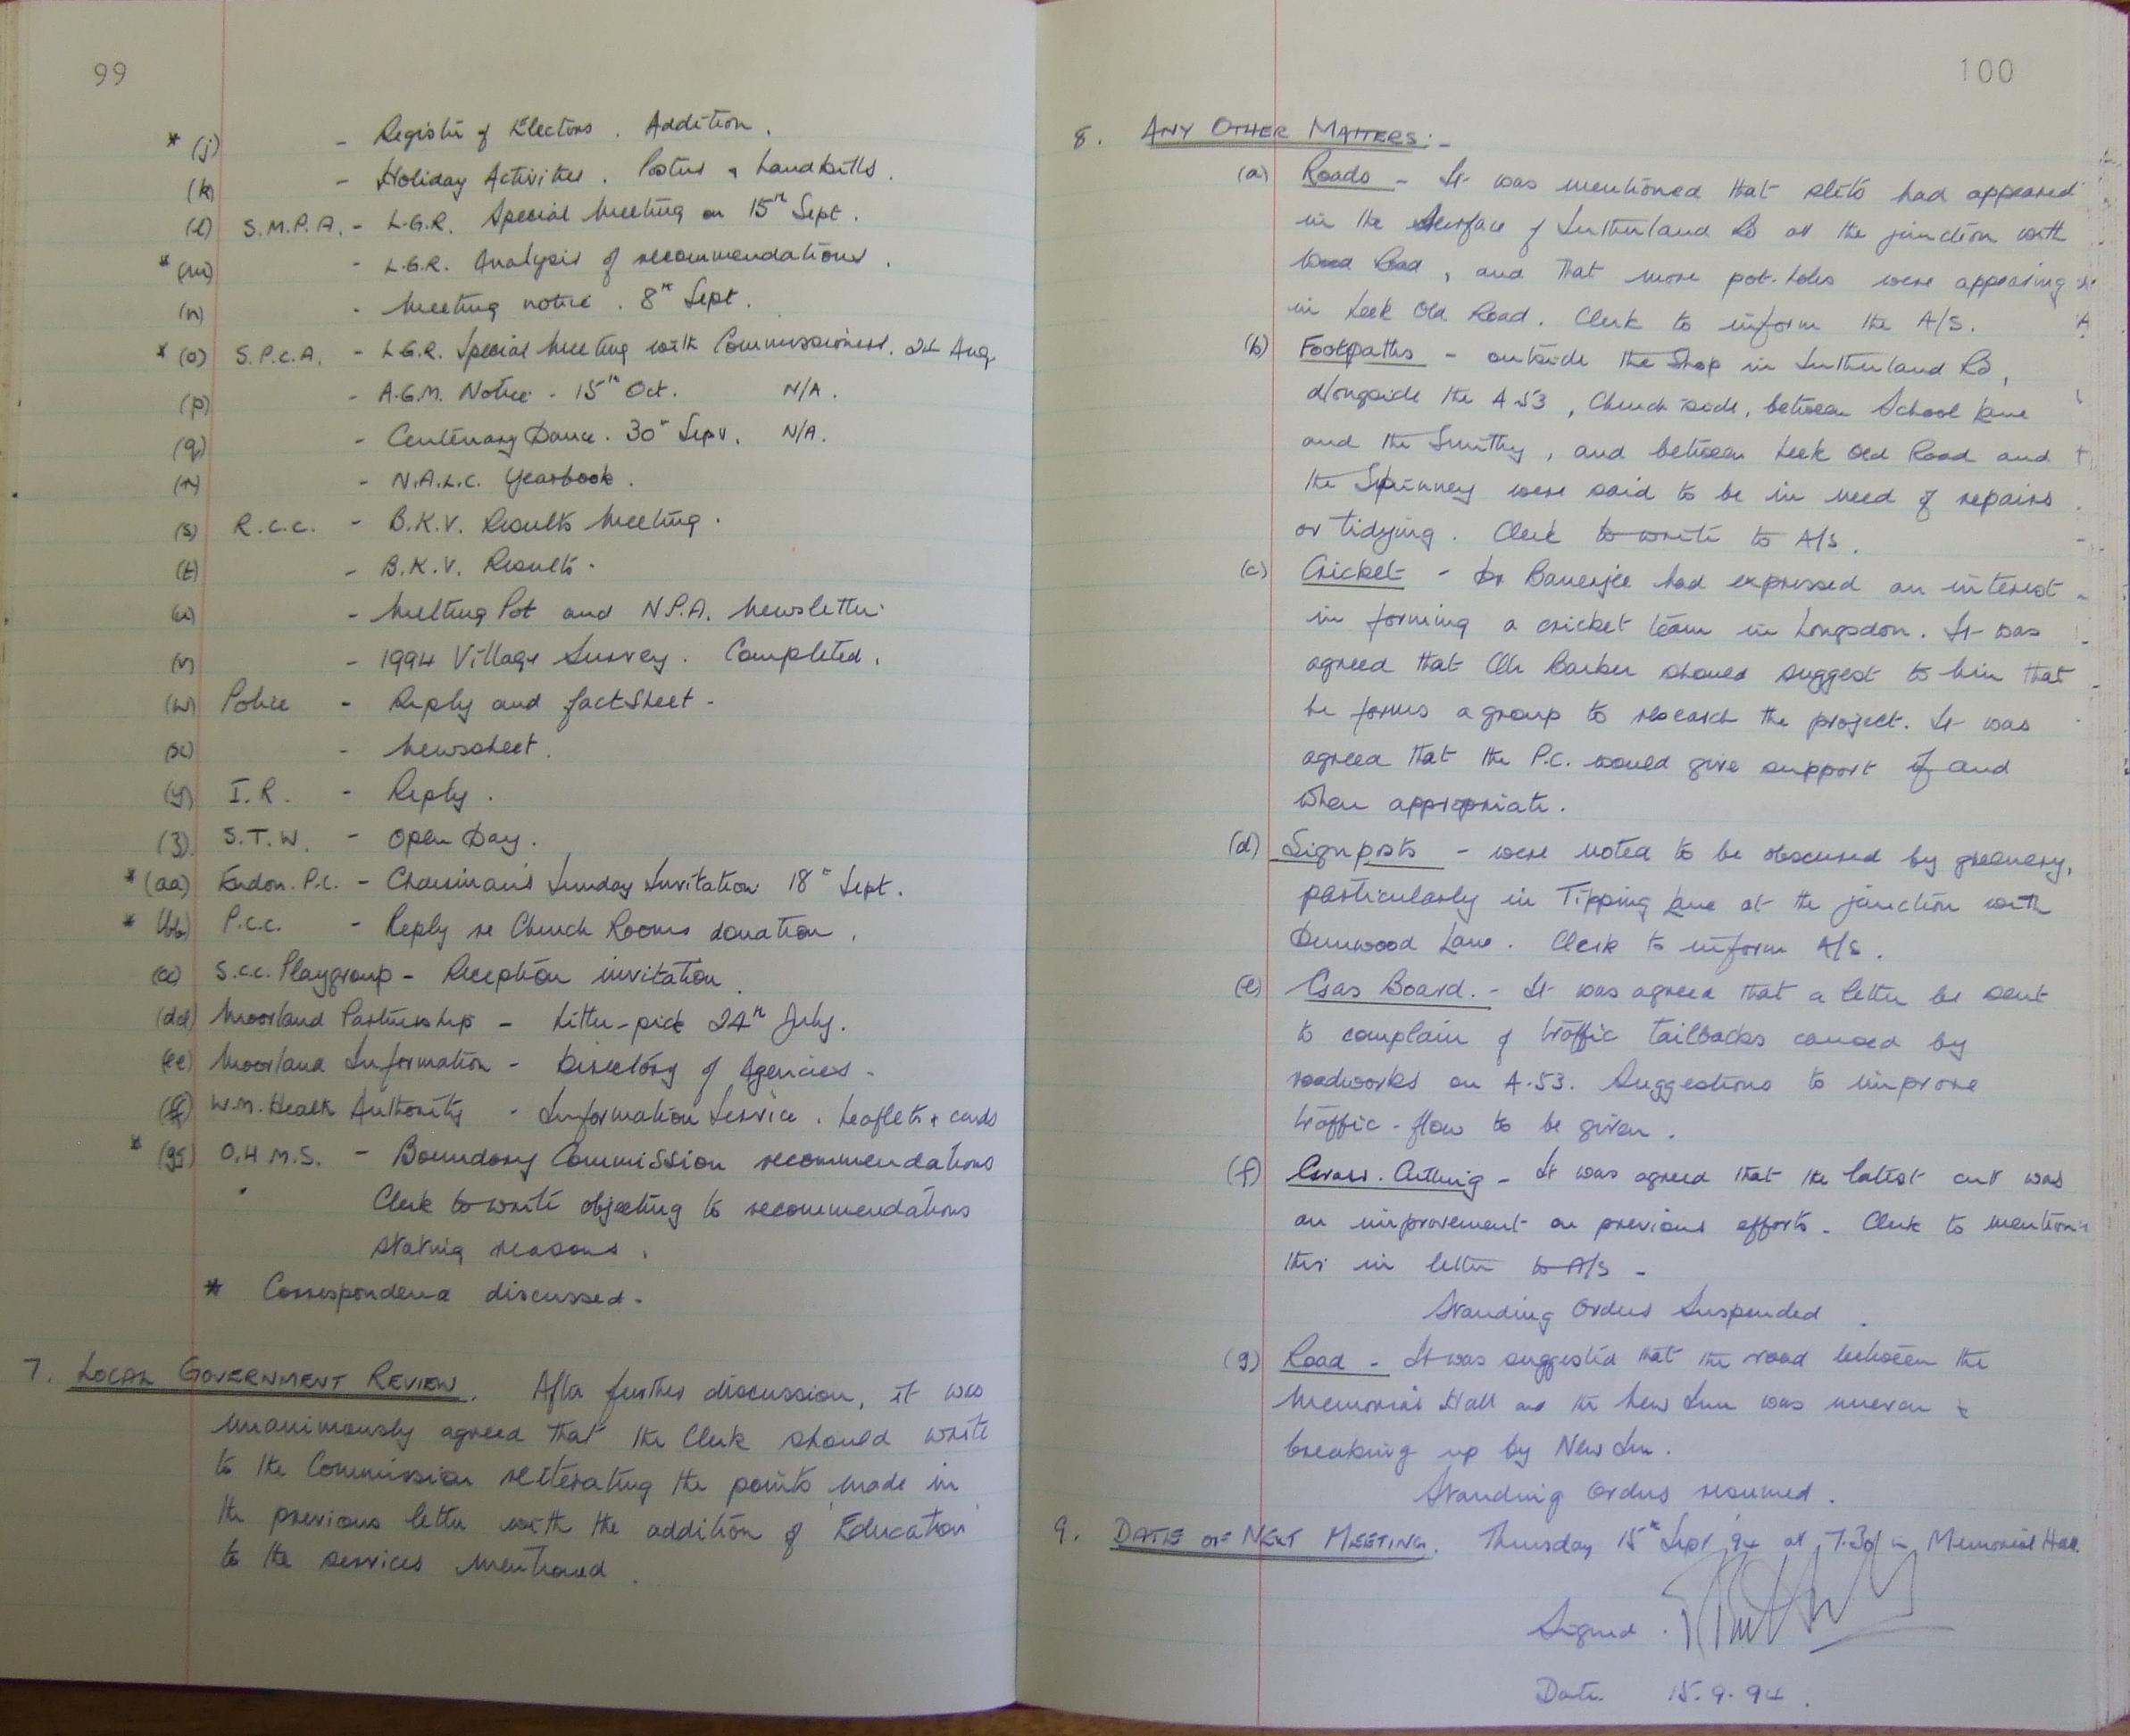 99
* (j) - Register of Electors. Addition.
(k) - Holiday Activities. Posters & handbills.
(l) S.M.P.A. - L.G.R. Special Meeting on 15th Sept.
* (m) - L.G.R. Analysis of recommendations.
(n) - Meeting notice. 8th Sept.
* (o) S.P.C.A. - L.G.R. Special Meeting with Commissioners. Aug.
(p) - A.G.M. Notice - 15th Oct. N/A.
(q) - Centenary Dance. 30th Sept. N/A.
(r) - N.A.L.C. Yearbook.
(s) R.C.C. - B.K.V. Results Meeting.
(t) - B.K.V. Results.
(u) - Melting Pot and N.P.A. Newsletter.
(v) - 1994 Village Survey. Completed.
(w) Police - Reply and factsheet.
(x) - Newssheet.
(y) I.R. - Reply.
(z) S.T.W. - Open Day.
* (aa) Endon. P.C. - Chairman's Sunday Invitation 18th Sept.
* (bb) P.C.C. - Reply re Church Rooms donation.
(cc) S.C.C. Playgroup - Reception invitation.
(dd) Moorland Partnership - Litter-pick 24th July.
(ee) Moorland Information - Directory of Agencies.
(ff) W.M. Health Authority - Information Service. Leaflets & cards
* (gg) O.H.M.S. - Boundary Commission recommendations
Clerk to write objecting to recommendations
stating reasons.
* Correspondence discussed.
7. LOCAL GOVERNMENT REVIEW. After further discussion, it was
unanimously agreed that the Clerk should write
to the Commission reiterating the points made in
the previous letter with the addition of 'Education'
to the services mentioned.
100
8. ANY OTHER MATTERS:-
(a) Roads - It was mentioned that slits had appeared
in the surface of Sutherland Rd at the junction with
Wood Road, and that more pot-holes were appearing
in Leek Old Road. Clerk to inform the A/S.
(b) Footpaths - outside the Shop in Sutherland Rd,
alongside the A53, Church side, between School Lane
and the Smithy, and between Leek Old Road and
the Spinney were said to be in need of repairs
or tidying. Clerk to write to A/S.
(c) Cricket - Dr Banerjee had expressed an interest
in forming a cricket team in Longsdon. It was
agreed that Cllr Barker should suggest to him that
he forms a group to research the project. It was
agreed that the P.C. would give support if and
when appropriate.
(d) Signposts - were noted to be obscured by greenery,
particularly in Tipping Lane at the junction with
Dunwood Lane. Clerk to inform A/S.
(e) Gas Board. - It was agreed that a letter be sent
to complain of traffic tailbacks caused by
roadworks on A.53. Suggestions to improve
traffic-flow to be given.
(f) Grass. Cutting - It was agreed that the latest cut was
an improvement on previous efforts - Clerk to mention
this in letter to A/S -
Standing Orders Suspended.
(g) Road - It was suggested that the road between the
Memorial Hall and the New Inn was uneven &
breaking up by New Inn.
Standing Orders resumed.
9. DATE OF NEXT MEETING. Thursday 15th Sept '94 at 7.30 in Memorial Hall.
Signed.
Date. 15.9.94.